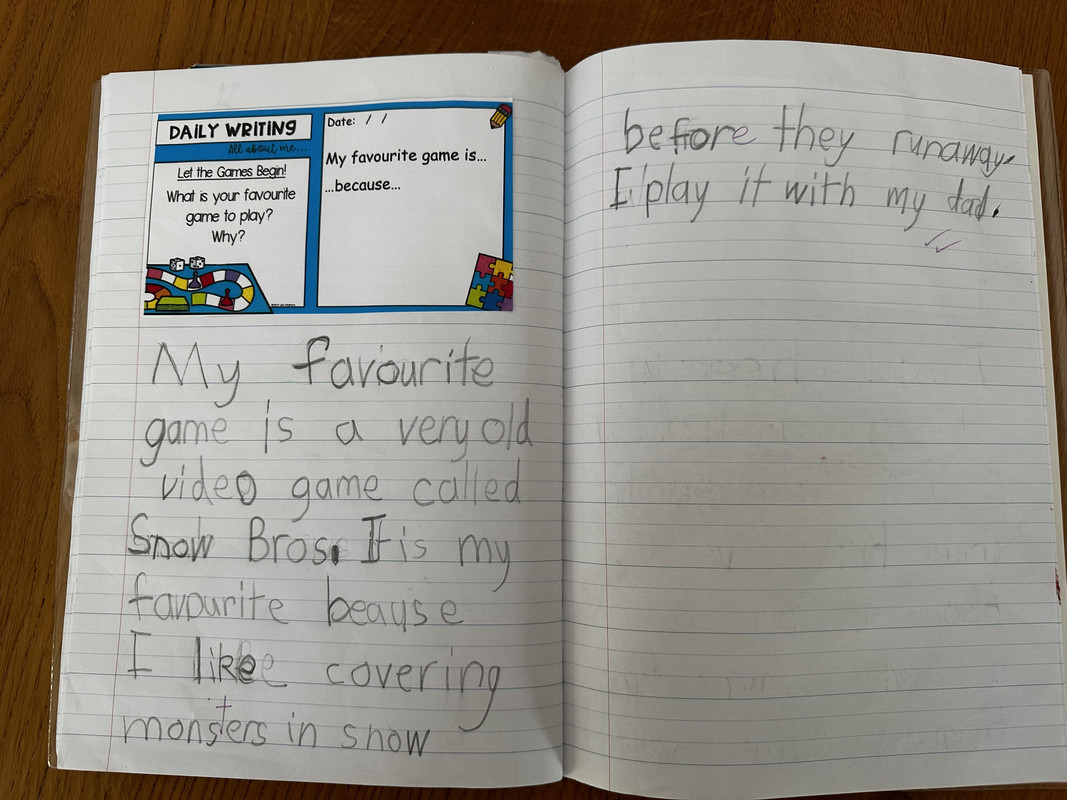 DAILY WRITING
All about me...
Let the Games Begin!
What is your favourite
game to play?
Why?
Date: / /
My favourite game is...
...because...
My favourite
game is a very old
video game called
Snow Bros. It is my
favourite beause
I like covering
monsters in snow
before they runaway.
I play it with my dad.